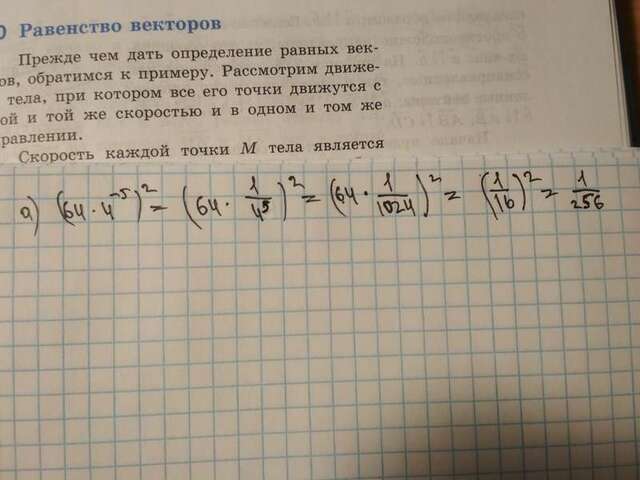 Равенство векторов
Прежде чем дать определение равных век-
ов, обратимся к примеру. Рассмотрим движе-
тела, при котором все его точки движутся с
ой и той же скоростью и в одном и том же
равлении.
Скорость каждой точки M тела является
а) (64 · 4⁻⁵)² = (64 · 1/4⁵)² = (64 · 1/1024)² = (1/16)² = 1/256